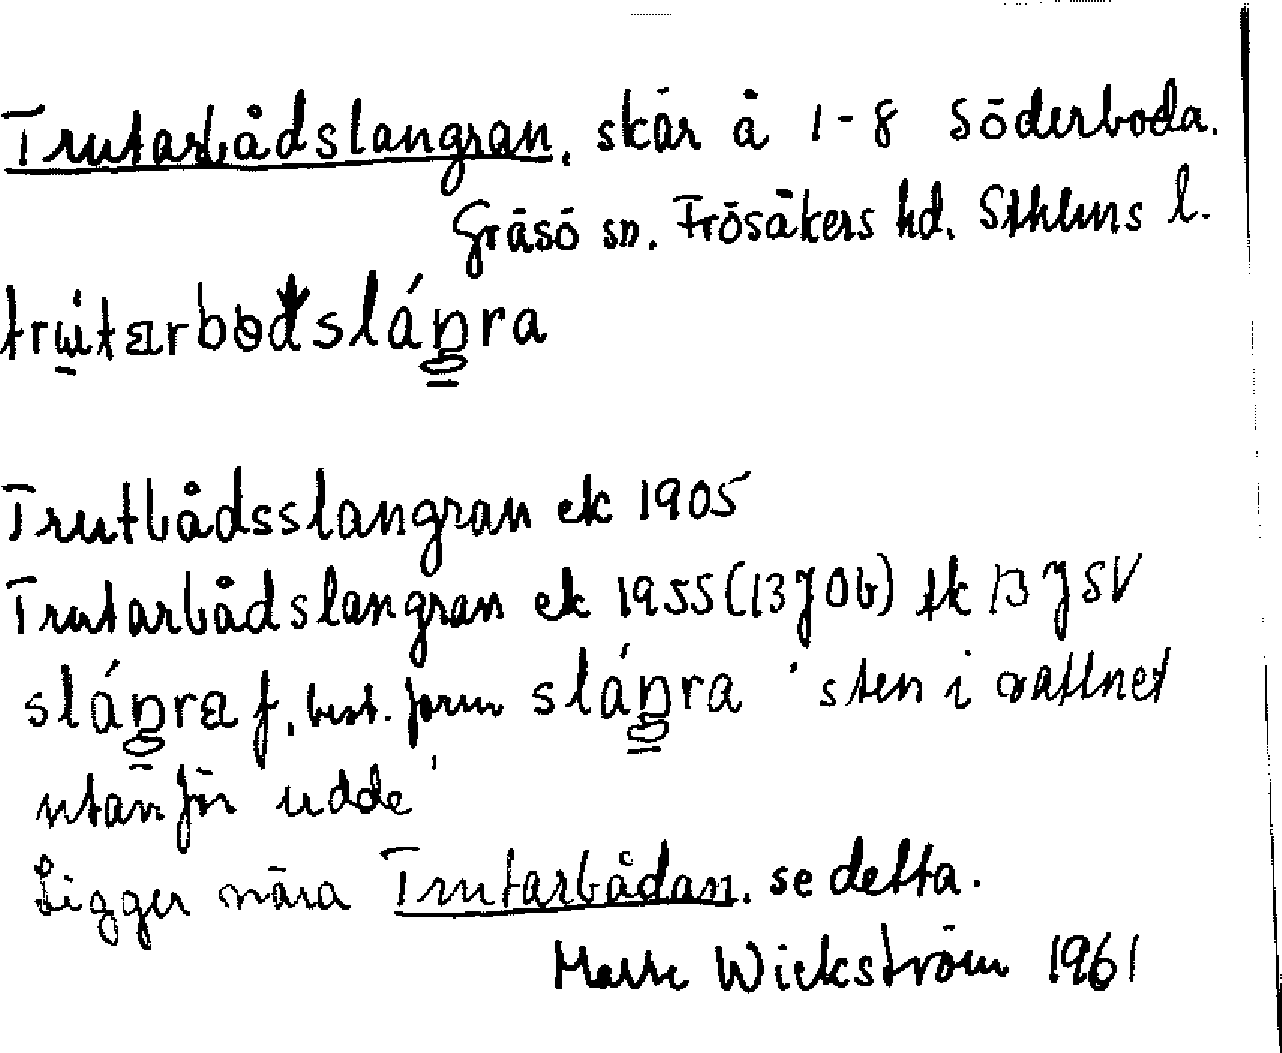 Trutarbådslangran, skär å 1-8 Söderboda.
Gräsö sn. Frösåkers hd. Sthlms l.
Trutbådsslangran ek 1905
Trutarbådslangran ek 1955 (13J0b) tk 13J SV
sláŋra f, best. form sláŋra 'sten i vattnet
utanför udde'
Ligger nära Trutarbådan, se detta.
Wickström 1961